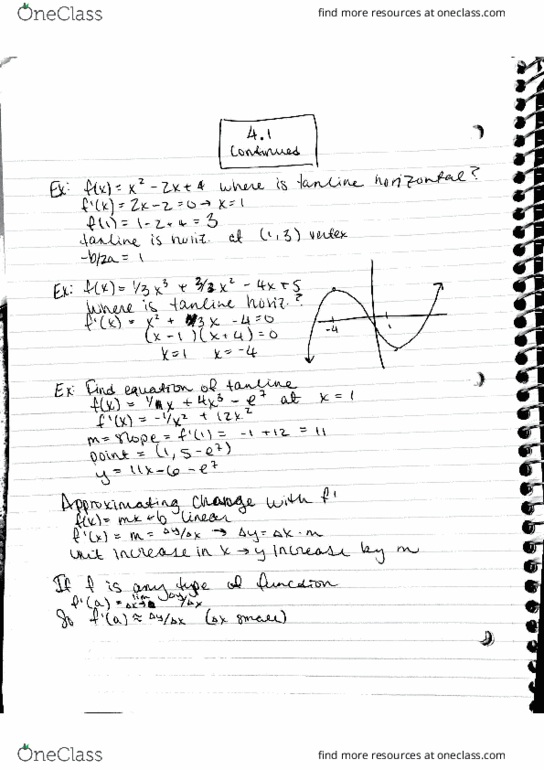 OneClass
find more resources at oneclass.com
4.1
Continued
Ex: f(x) = x² - 2x + 4 where is tanline horizontal?
f'(x) = 2x - 2 = 0 → x = 1
f(1) = 1 - 2 + 4 = 3
tanline is horiz. at (1, 3) vertex
-b/2a = 1
Ex: f(x) = 1/3 x³ + 3/2 x² - 4x + 5
where is tanline horiz.?
f'(x) = x² + 3x - 4 = 0
(x - 1)(x + 4) = 0
x = 1 x = -4
-4 1
Ex: Find equation of tanline
f(x) = 1/x + 4x³ - e⁷ at x = 1
f'(x) = -1/x² + 12x²
m = slope = f'(1) = -1 + 12 = 11
point = (1, 5 - e⁷)
y = 11x - 6 - e⁷
Approximating Change with f'
f(x) = mx + b linear
f'(x) = m = Δy/Δx → Δy = Δx · m
Unit increase in x → y increase by m
If f is any type of function
f'(a) = lim Δx→0 Δy/Δx
So f'(a) ≈ Δy/Δx (Δx small)
OneClass
find more resources at oneclass.com